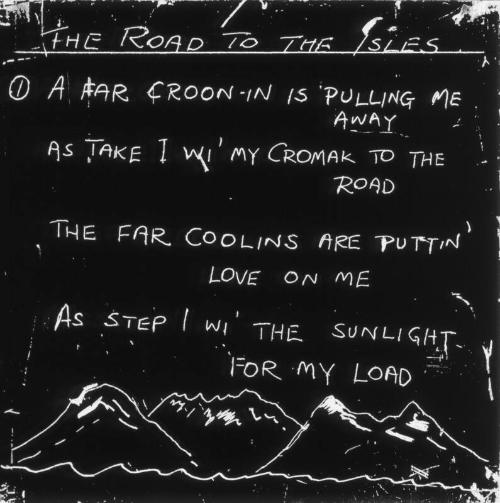 THE ROAD TO THE ISLES
① A FAR CROON-IN IS PULLING ME
AWAY
AS TAKE I WI' MY CROMAK TO THE
ROAD
THE FAR COOLINS ARE PUTTIN'
LOVE ON ME
AS STEP I WI' THE SUNLIGHT
FOR MY LOAD